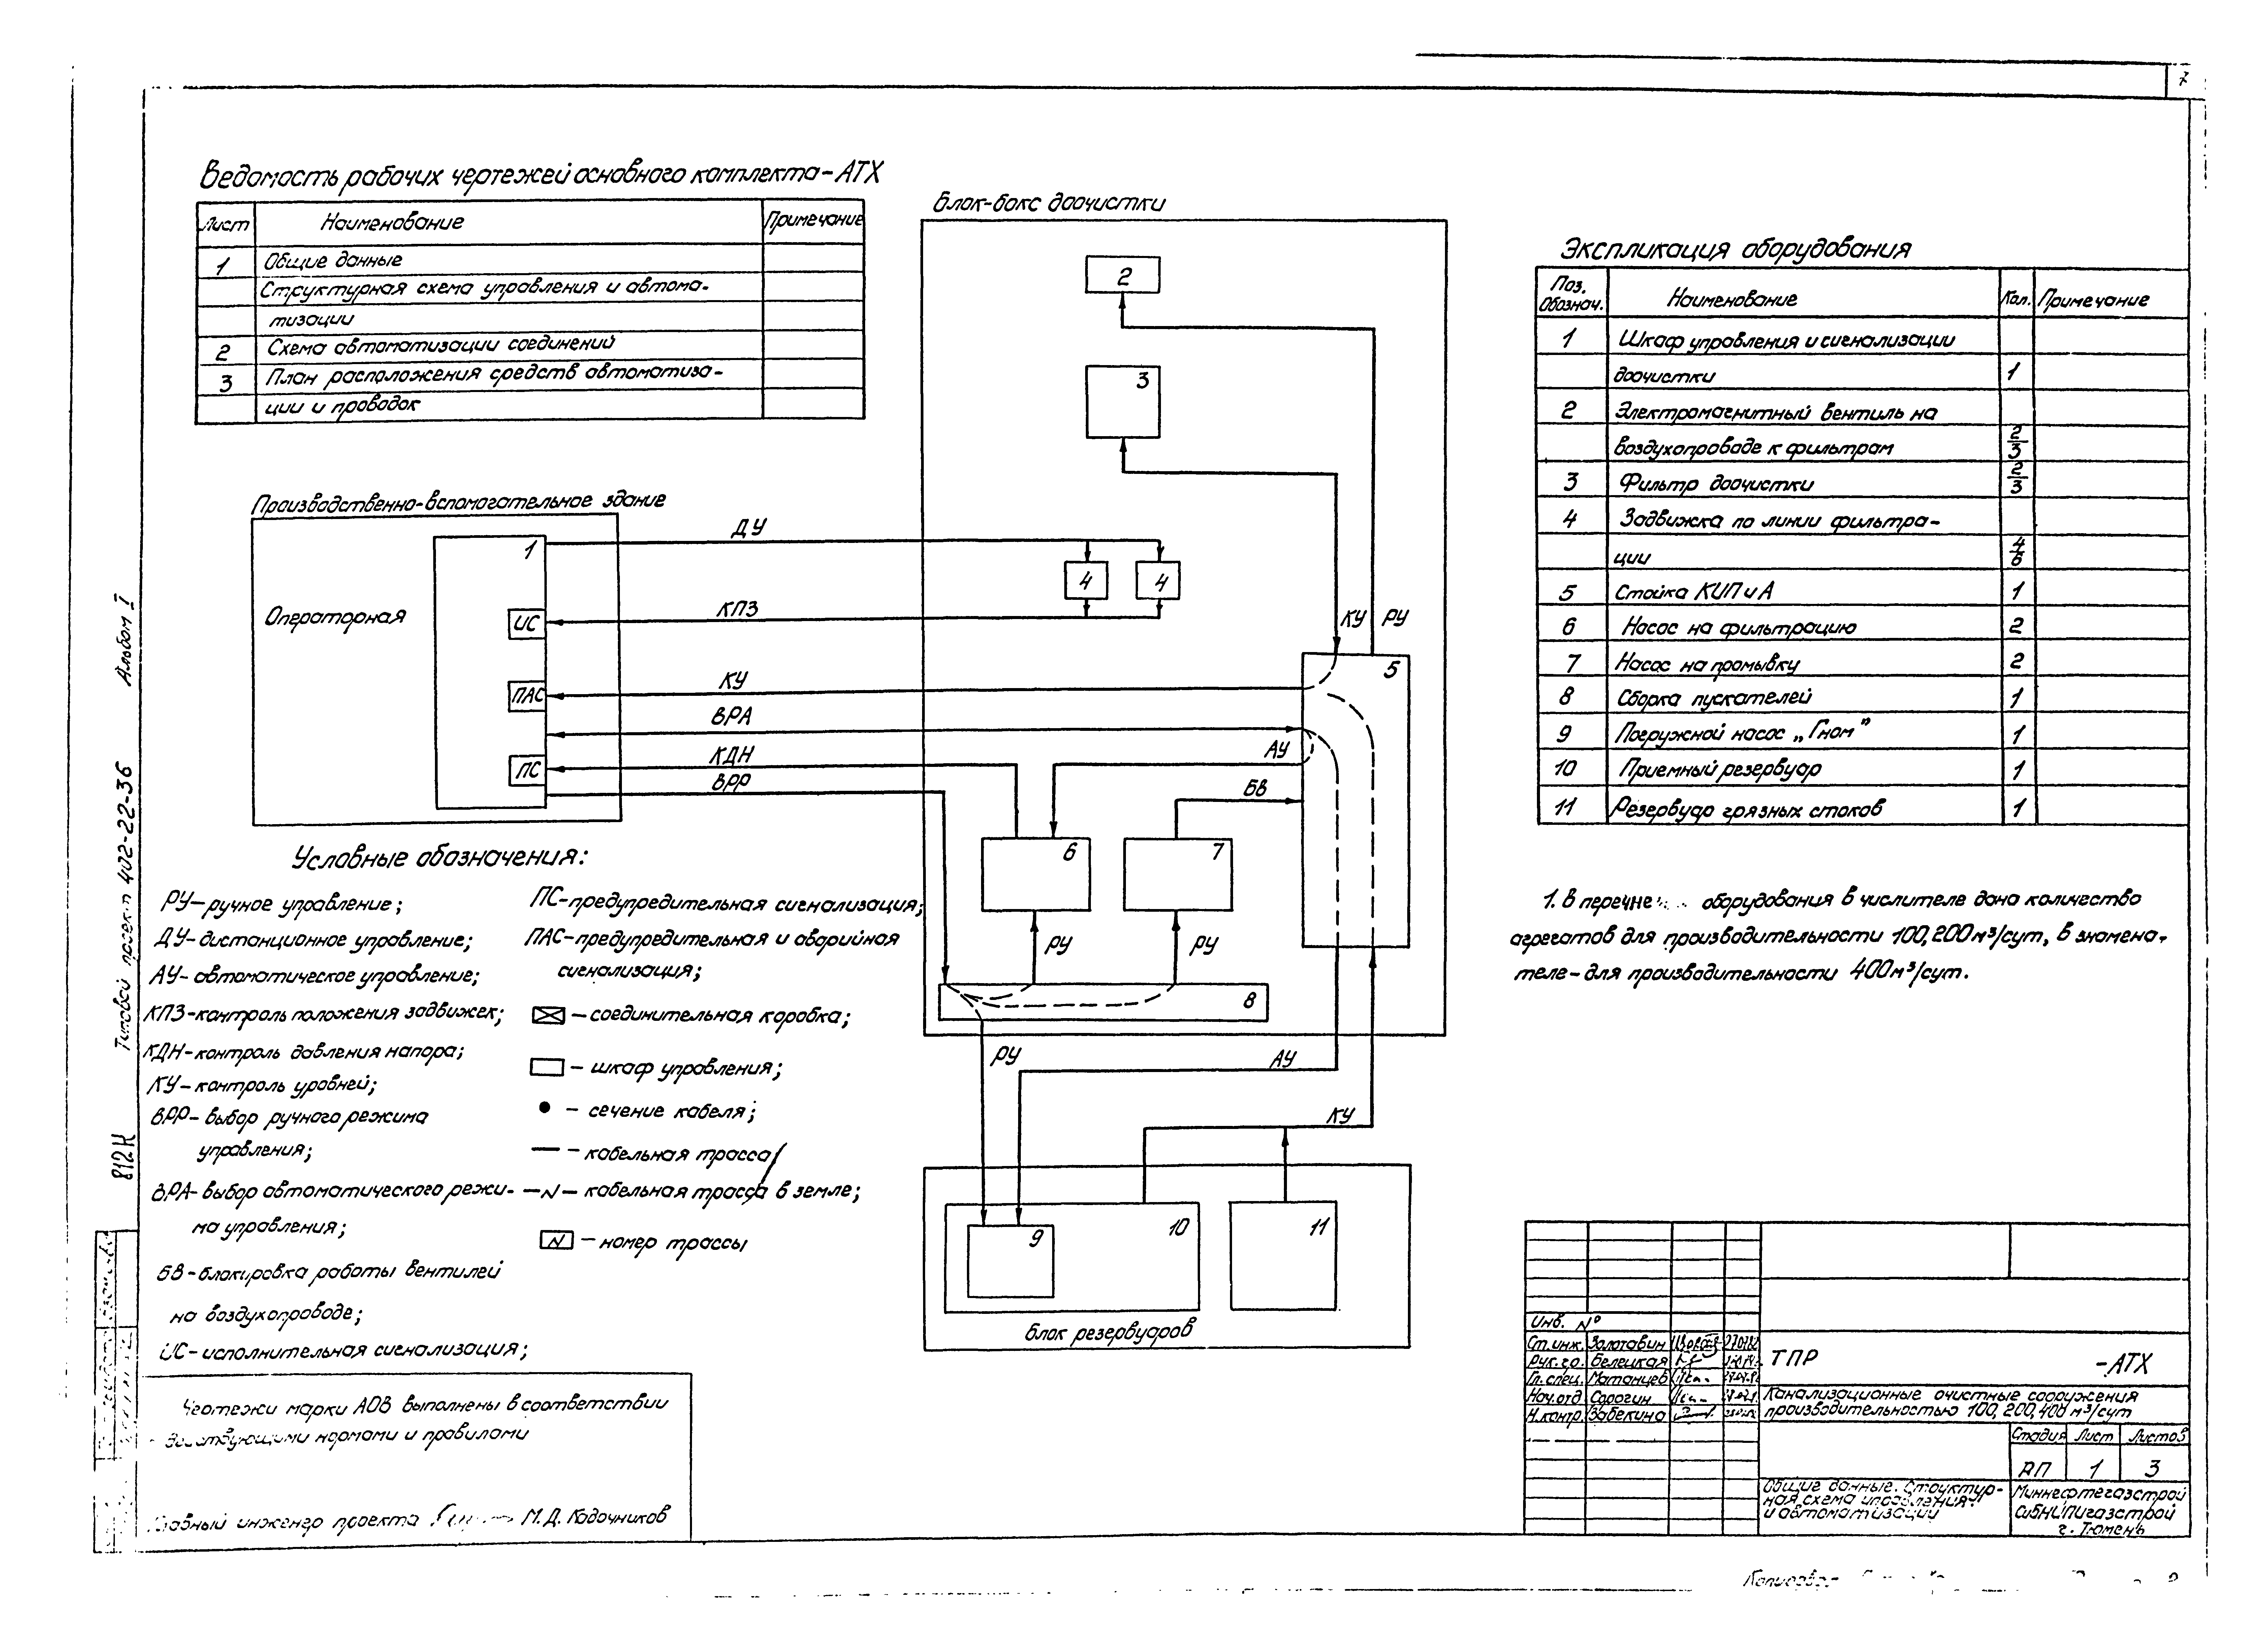 7
Ведомость рабочих чертежей основного комплекта-АТХ
Лист Наименование Примечание
1 Общие данные
Структурная схема управления и автома-
тизации
2 Схема автоматизации соединений
3 План расположения средств автоматиза-
ции и проводок
Производственно-вспомогательное здание
Операторная
1
ИС
ПАС
ПС
ДУ
КПЗ
КУ
ВРА
КДН
ВРР
Блок-бокс доочистки
2
3
4 4
КУ РУ
5
АУ
БВ
6
7
РУ РУ
8
РУ
АУ
КУ
9
10
11
блок резервуаров
Экспликация оборудования
Поз. Обознач. Наименование Кол. Примечание
1 Шкаф управления и сигнализации
доочистки 1
2 Электромагнитный вентиль на
воздухопроводе к фильтрам 2/3
3 Фильтр доочистки 2/3
4 Задвижка по линии фильтра-
ции 4/6
5 Стойка КИП и А 1
6 Насос на фильтрацию 2
7 Насос на промывку 2
8 Сборка пускателей 1
9 Погружной насос „Гном" 1
10 Приемный резервуар 1
11 Резервуар грязных стоков 1
1. В перечне оборудования в числителе дано количество
агрегатов для производительности 100,200м³/сут, в знамена-
теле-для производительности 400м³/сут.
Условные обозначения:
РУ-ручное управление;
ДУ-дистанционное управление;
АУ-автоматическое управление;
КПЗ-контроль положения задвижек;
КДН-контроль давления напора;
КУ-контроль уровней;
ВРР-выбор ручного режима
управления;
ВРА-выбор автоматического режи-
ма управления;
БВ-блокировка работы вентилей
на воздухопроводе;
ИС-исполнительная сигнализация;
ПС-предупредительная сигнализация;
ПАС-предупредительная и аварийная
сигнализация;
- соединительная коробка;
- шкаф управления;
- сечение кабеля;
- кабельная трасса;
-N- кабельная трасса в земле;
N - номер трассы
Чертежи марки АОВ выполнены в соответствии
нормами и правилами
инженер проекта М.Д. Кодочников
Типовой проект 402-22-36 Альбом I
812Н
Инв. №
Ст.инж. Золотавин
Рук.гр. Белецкая
Гл.спец. Матанцев
Нач.отд Сорогин
Н.контр. Забекина
ТПР -АТХ
Канализационные очистные сооружения
производительностью 100, 200, 400 м³/сут
Стадия Лист Листов
РП 1 3
Общие данные. Структур-
ная схема управления
и автоматизации
Миннефтегазстрой
СибНИПИгазстрой
г. Тюмень
Копировал